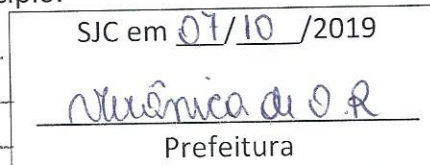 SJC em 07/10/2019
Verônica de O.R
Prefeitura